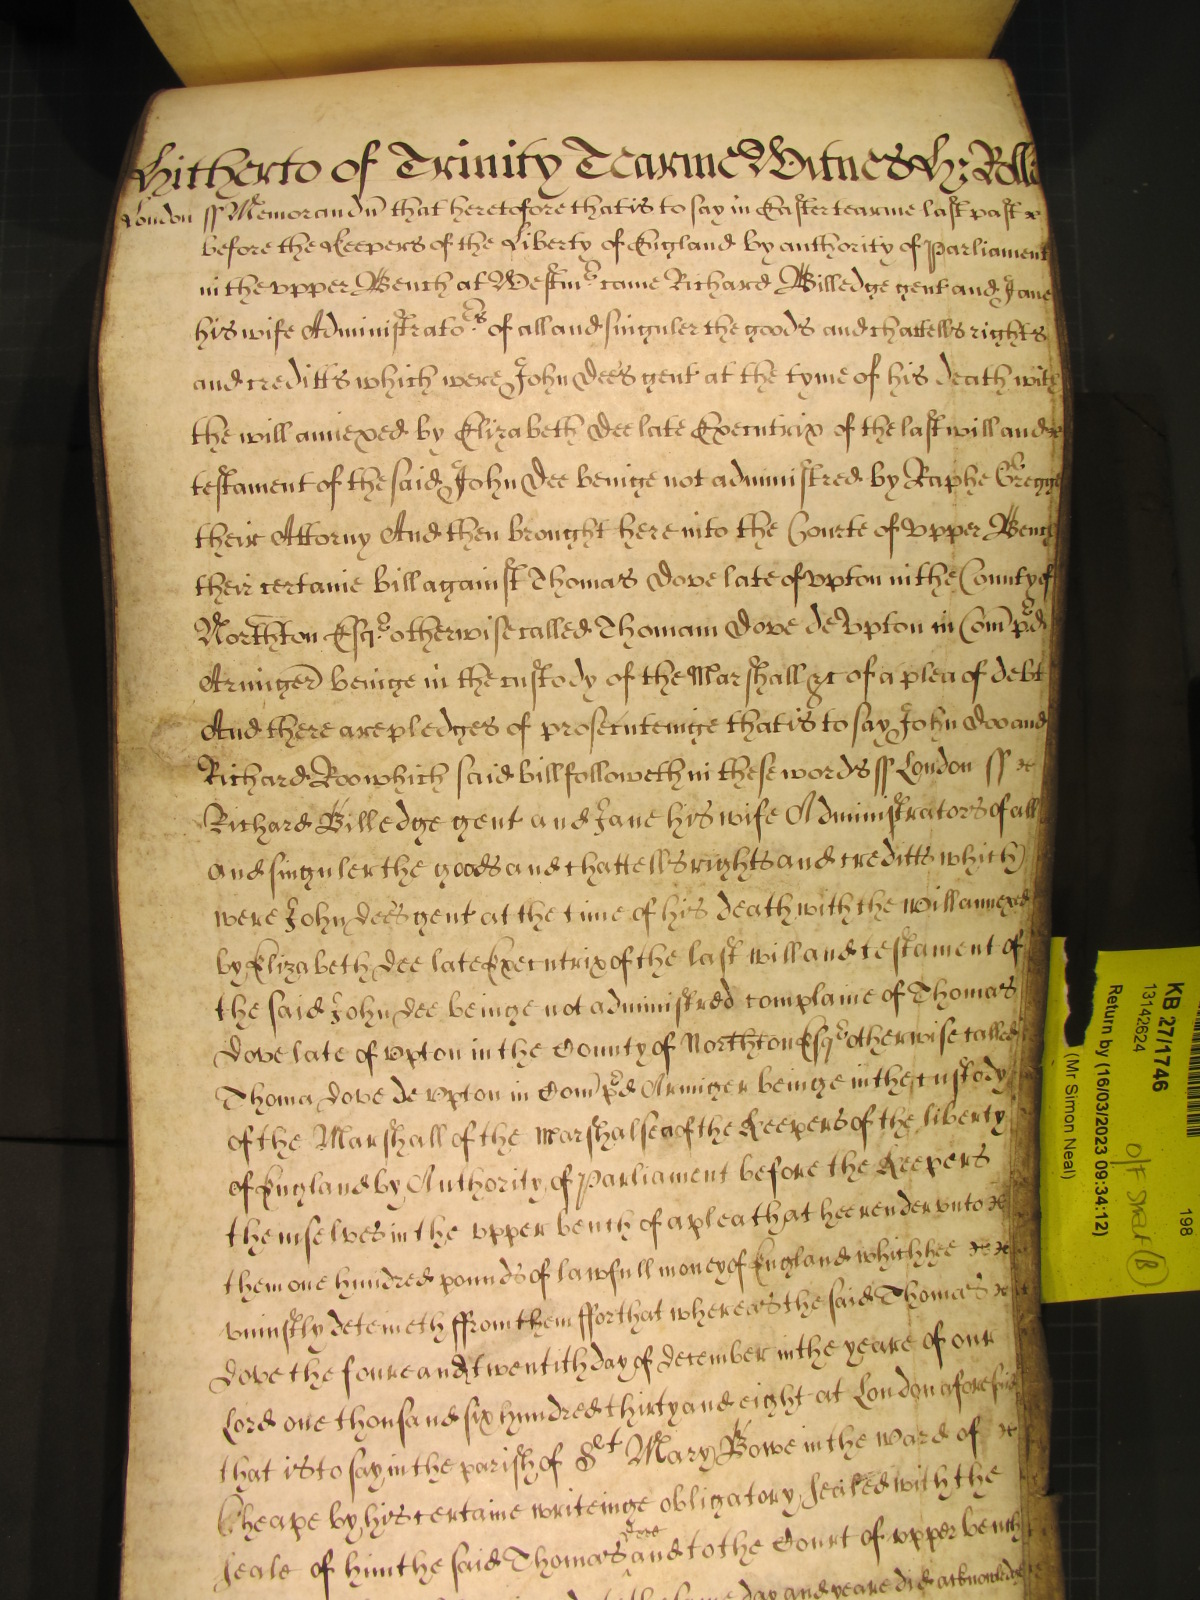 Hitherto of Trinity Tearme Witnes H: Rolle
London ss Memorandū that heretofore that is to say in Easter tearme last past
before the Keepers of the Liberty of England by authority of Parliament
in the vpper Bench at Westmr came Richard Billedge gent and Jane
his wife Administrators of all and singuler the goods and chattells rights
and creditts which were John Dees gent at the tyme of his death with
the will annexed by Elizabeth Dee late Executrix of the last will and
testament of the said John Dee beinge not administred by Raphe Gregge
their Attorny And then brought here into the Courte of vpper Bench
their certaine bill against Thomas Dove late of vpton in the County of
Northton Esqr otherwise called Thomam Dove de Vpton in Com pred
Armigerū beinge in the custody of the Marshall &c of a plea of debt
And there are pledges of prosecuteinge that is to say John Doo and
Richard Roo which said bill followeth in these words ss London ss
Richard Billedge gent and Jane his wife Administrators of all
and singuler the goods and chattells rights and creditts which
were John Dees gent at the time of his death with the will annexed
by Elizabeth Dee late Executrix of the last will and testament of
the said John Dee beinge not administred complaine of Thomas
Dove late of vpton in the County of Northton Esqr otherwise called
Thoma Dove de vpton in Com pred Armiger beinge in the custody
of the Marshall of the Marshalsea of the Keepers of the liberty
of England by Authority of Parliament before the Keepers
themselves in the vpper bench of a plea that hee render vnto
them one hundred pounds of lawfull money of England which hee
vniustly deteineth ffrom them ffor that whereas the said Thomas
Dove the foure and twentith day of December in the yeare of our
Lord one thousand six hundred thirty and eight at London aforesaid
that is to say in the parish of Set Mary Bowe in the ward of
Cheape by his certaine writeinge obligatory sealed with the
seale of him the said Thomas Dove and to the Court of vpper bench
the same day and yeare did acknowledge
KB 27/1746
198
13142624
O/F Stret (B)
Return by (16/03/2023 09:34:12)
(Mr Simon Neal)